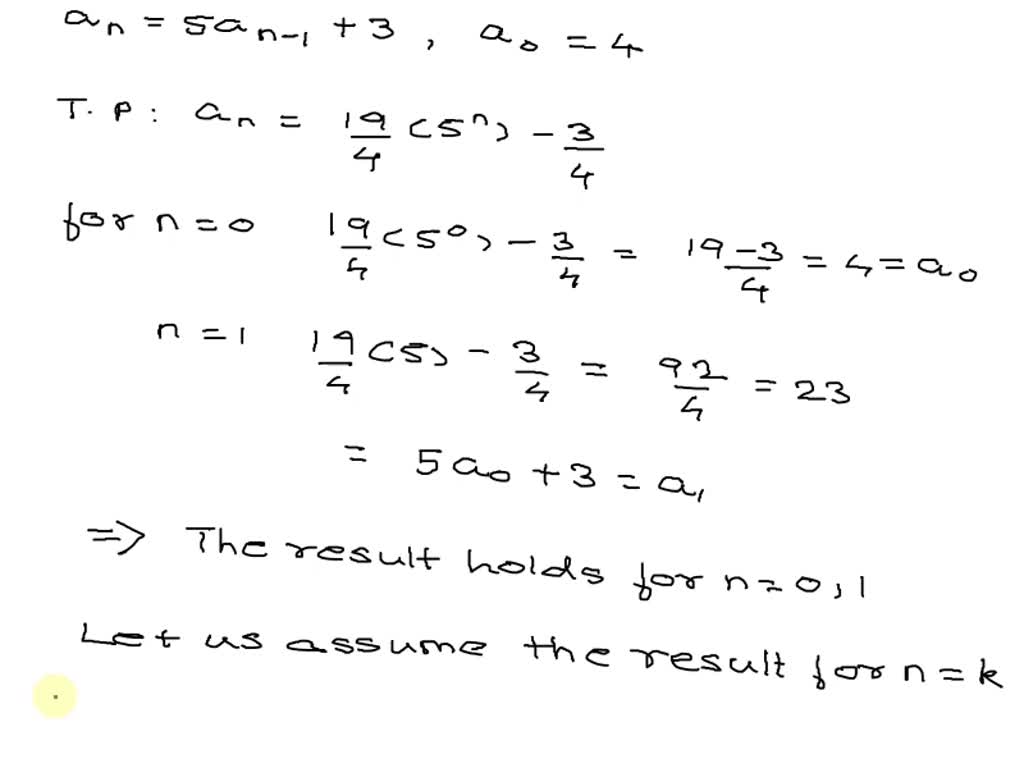 aₙ = 5aₙ₋₁ + 3, a₀ = 4
T.P: aₙ = 19/4 (5ⁿ) - 3/4
for n = 0 19/4 (5⁰) - 3/4 = 19-3/4 = 4 = a₀
n = 1 19/4 (5) - 3/4 = 92/4 = 23
= 5a₀ + 3 = a₁
=> The result holds for n = 0, 1
Let us assume the result for n = k